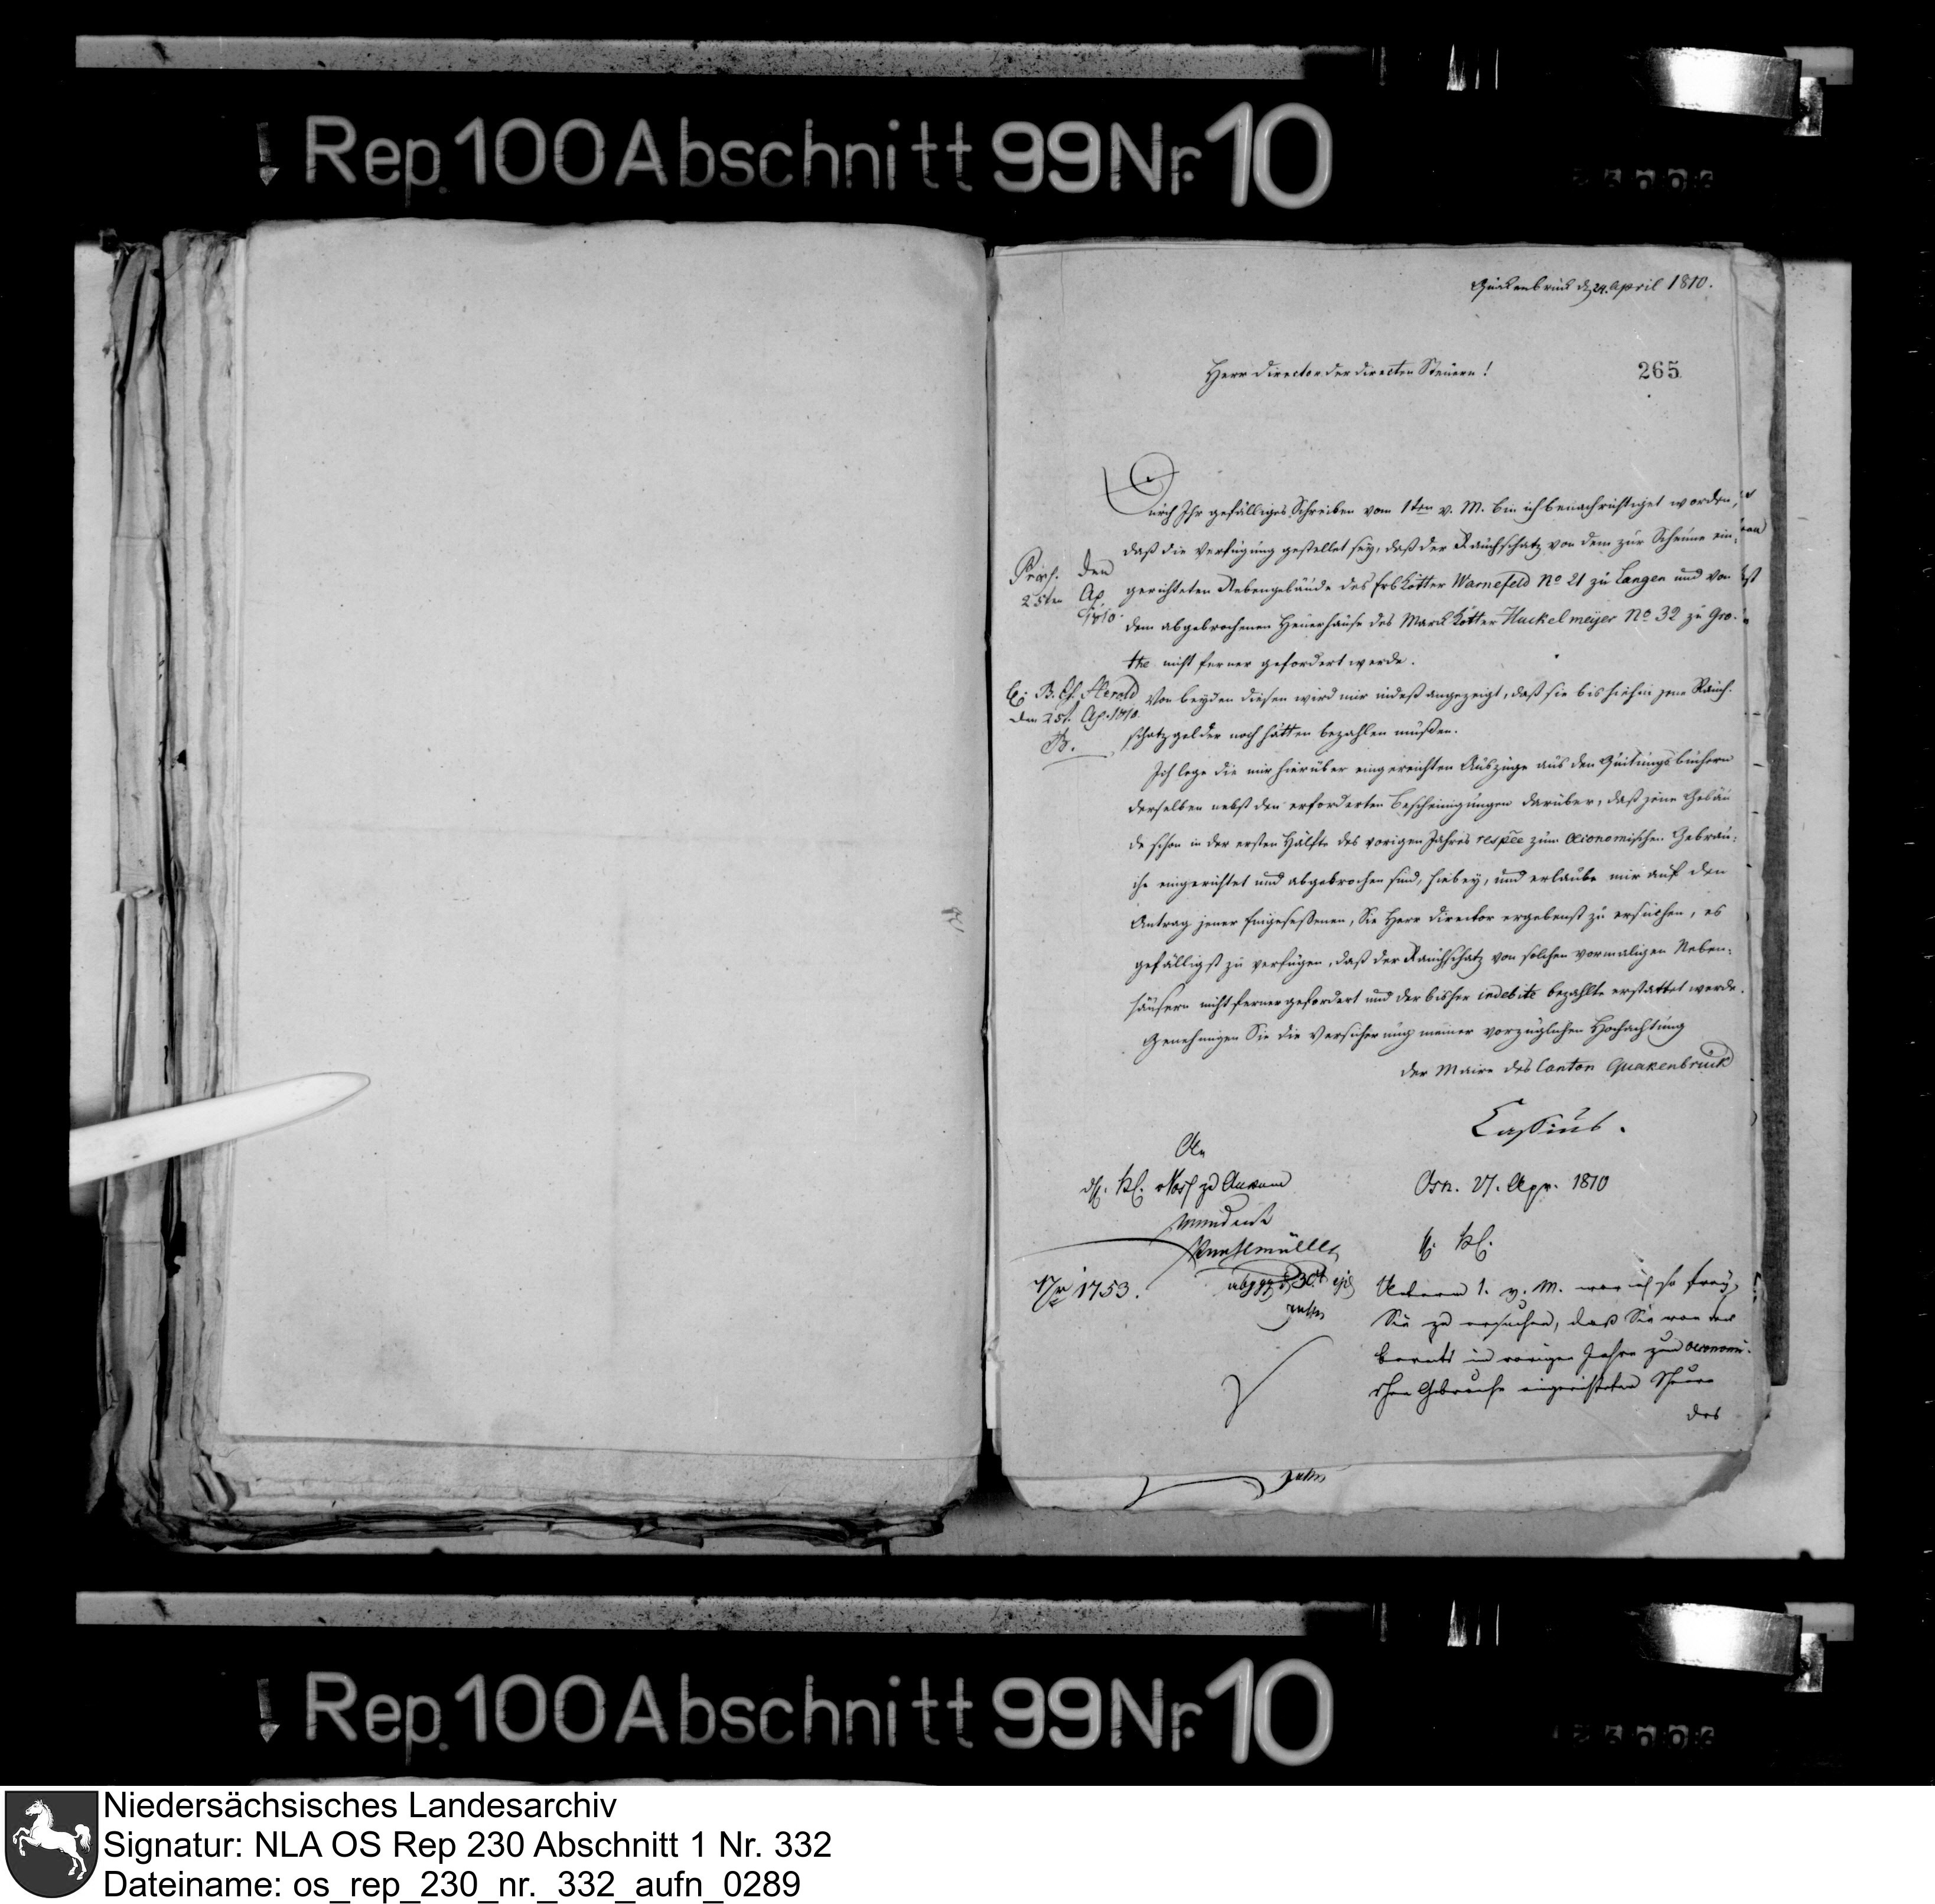 Rep. 100 Abschnitt 99 Nr. 10
Quakenbrück d 24. April 1810.
Herr Director der directen Steuern!
265
Durch Ihr gefälliges Schreiben vom 1ten v. M. bin ich benachrichtiget worden,
daß die Verfügung gestellet sey, daß der Rauchschatz von dem zur Scheune ein-
gerichteten Nebengebäude des Erbkötter Warnefeld No 21 zu Langen und von
dem abgebrochenen Heuerhause des Markkötter Huckelmeijer No. 32 zu Gro-
the nicht ferner gefordert werde.
Von beyden diesen wird mir indeß angezeigt, daß sie bis hiehin jene Rauch-
schatzgelder noch hätten bezahlen müßen.
Ich lege die mir hierüber eingereichten Auszüge aus den Quitungsbüchern
derselben nebst den erforderten Bescheinigungen darüber, daß jene Gebäu
de schon in der ersten Hälfte des vorigen Jahres respēe zum oeconomischen Gebrau-
che eingerichtet und abgebrochen sind, hiebey, und erlaube mir auf den
Antrag jener Eingeseßenen, Sie Herr Director ergebenst zu ersuchen, es
gefälligst zu verfügen, daß der Rauchschatz von solchen vormaligen Neben-
häusern nicht ferner gefordert und der bisher indebite bezahlte erstattet werde.
Genehmigen Sie die Versicherung meiner vorzüglichen Hochachtung
Der Maire des Canton Quakenbrück
Cassius.
Präs. den
25ten Ap
1810.
B. Ch. Herold
den 25t. Ap. 1810.
B.
An
zu Ankum
mundirt
abggg d 30t ejd
Nr 1753.
Osn. 27. Apr. 1810
Unterm 1. v. M. war ich so frey,
Sie zu ersuchen, daß Sie von der
bereits im vorigen Jahre zum oeconomi-
schen Gebrauche eingerichteten Scheune
des
Rep. 100 Abschnitt 99 Nr. 10
Niedersächsisches Landesarchiv
Signatur: NLA OS Rep 230 Abschnitt 1 Nr. 332
Dateiname: os_rep_230_nr._332_aufn_0289